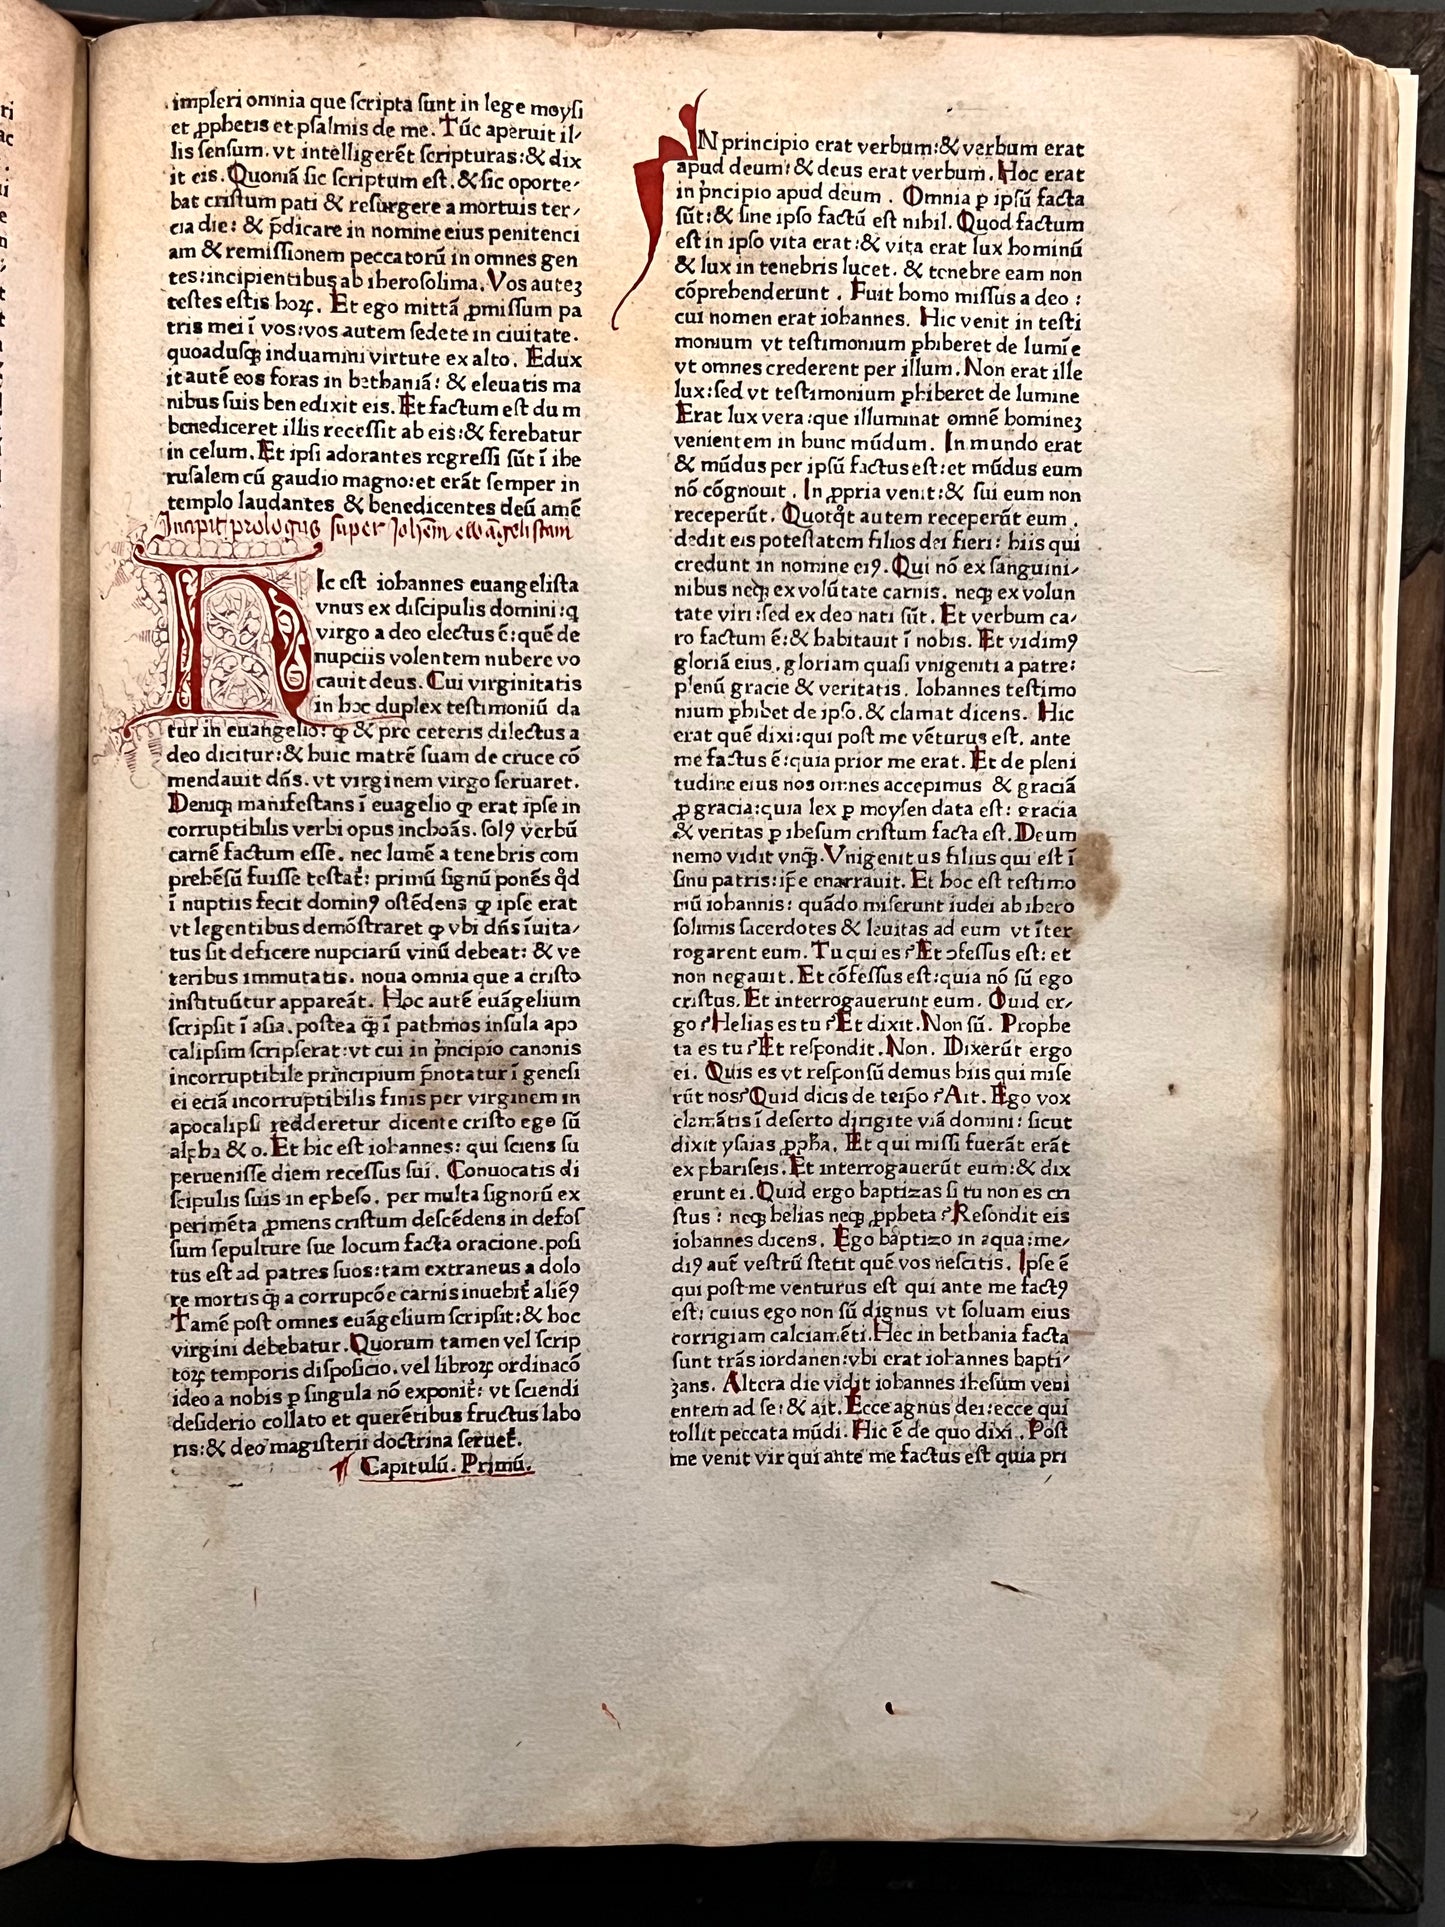 impleri omnia que scripta sunt in lege moysi
et ꝓphetis et psalmis de me. Tūc aperuit il⸗
lis sensum. vt intelligerēt scripturas: & dix
it eis. Quoniā sic scriptum est. & sic oporte⸗
bat cristum pati & resurgere a mortuis ter⸗
cia die: & p̄dicare in nomine eius penitenci
am & remissionem peccatorū in omnes gen
tes: incipientibus ab iherosolima. Vos auteȝ
testes estis hoꝝ. Et ego mittā ꝓmissum pa
tris mei ī vos: vos autem sedete in ciuitate.
quoadusqꝫ induamini virtute ex alto. Edux
it autē eos foras in bethaniā: & eleuatis ma
nibus suis benedixit eis. Et factum est dum
benediceret illis recessit ab eis: & ferebatur
in celum. Et ipsi adorantes regressi sūt ī ihe
rusalem cū gaudio magno: et erāt semper in
templo laudantes & benedicentes deū amē
Incipit prologus super Johēm ewāgelistam
HIc est iohannes euangelista
vnus ex discipulis domini: q
virgo a deo electus ē: quē de
nupciis volentem nubere vo
cauit deus. Cui virginitatis
in hoc duplex testimoniū da
tur in euangelio: ꝙ & pre ceteris dilectus a
deo dicitur: & huic matrē suam de cruce cō
mendauit dn̄s. vt virginem virgo seruaret.
Deniqꝫ manifestans ī euagelio ꝙ erat ipse in
corruptibilis verbi opus inchoās. solꝯ verbū
carnē factum esse. nec lumē a tenebris com
prehēsū fuisse testat᷑: primū signū ponēs qd̓
ī nuptiis fecit dominꝯ ostēdens ꝙ ipse erat
vt legentibus demōstraret ꝙ vbi dn̄s īuita⸗
tus sit deficere nupciarū vinū debeat: & ve
teribus immutatis. noua omnia que a cristo
instituūtur appareāt. Hoc autē euāgelium
scripsit ī asia. postea q̄ ī pathmos insula apo
calipsim scripserat: vt cui in pͥncipio canonis
incorruptibile principium p̄notatur ī genesi
ei eciā incorruptibilis finis per virginem in
apocalipsi redderetur dicente cristo ego sū
alpha & o. Et hic est iohannes: qui sciens su
peruenisse diem recessus sui. Conuocatis di
scipulis suis in epheso. per multa signorū ex
perimēta ꝓmens cristum descēdens in defos
sum sepulture sue locum facta oracione. posi
tus est ad patres suos: tam extraneus a dolo
re mortis q̄ a corrupcōe carnis inuenit᷑ aliēꝯ
Tamē post omnes euāgelium scripsit: & hoc
virgini debebatur. Quorum tamen vel scrip
toꝝ temporis disposicio. vel libroꝝ ordinacō
ideo a nobis ꝑ singula nō exponit᷑: vt sciendi
desiderio collato et querētibus fructus labo
ris: & deo magisterii doctrina seruet᷑.
¶ Capitulū. Primū.
IN principio erat verbum: & verbum erat
apud deum: & deus erat verbum. Hoc erat
in pͥncipio apud deum. Omnia ꝑ ipsū facta
sūt: & sine ipso factū est nihil. Quod factum
est in ipso vita erat: & vita erat lux hominū
& lux in tenebris lucet. & tenebre eam non
cōprehenderunt. Fuit homo missus a deo:
cui nomen erat iohannes. Hic venit in testi
monium vt testimonium ꝑhiberet de lumīe
vt omnes crederent per illum. Non erat ille
lux: sed vt testimonium ꝑhiberet de lumine
Erat lux vera: que illuminat omnē homineȝ
venientem in hunc mūdum. In mundo erat
& mūdus per ipsū factus est: et mūdus eum
nō cōgnouit. In ꝓpria venit: & sui eum non
receperūt. Quotqt̓ autem receperūt eum.
dedit eis potestatem filios dei fieri: hiis qui
credunt in nomine eiꝯ. Qui nō ex sanguini⸗
nibus neqꝫ ex volūtate carnis. neqꝫ ex volun
tate viri: sed ex deo nati sūt. Et verbum ca⸗
ro factum ē: & habitauit ī nobis. Et vidimꝯ
gloriā eius. gloriam quasi vnigeniti a patre:
plenū gracie & veritatis. Iohannes testimo
nium ꝑhibet de ipso. & clamat dicens. Hic
erat quē dixi: qui post me vēturus est. ante
me factus ē: quia prior me erat. Et de pleni
tudine eius nos omnes accepimus & graciā
ꝓ gracia: quia lex ꝑ moysen data est: gracia
& veritas ꝑ ihesum cristum facta est. Deum
nemo vidit vnq̄. Vnigenitus filius qui est ī
sinu patris: ip̄e enarrauit. Et hoc est testimo
niū iohannis: quādo miserunt iudei ab ihero
solimis sacerdotes & leuitas ad eum vt īter
rogarent eum. Tu qui es? Et ꝯfessus est: et
non negauit. Et cōfessus est: quia nō sū ego
cristus. Et interrogauerunt eum. Quid er⸗
go? Helias es tu? Et dixit. Non sū. Prophe
ta es tu? Et respondit. Non. Dixerūt ergo
ei. Quis es vt responsū demus hiis qui mise
rūt nos? Quid dicis de teipso? Ait. Ego vox
clamātis ī deserto dirigite viā domini: sicut
dixit ysaias ꝓph̄a. Et qui missi fuerāt erāt
ex phariseis. Et interrogauerūt eum: & dix
erunt ei. Quid ergo baptizas si tu non es cri
stus: neqꝫ helias neqꝫ ꝓpheta? Resondit eis
iohannes dicens. Ego baptizo in aqua: me⸗
diꝯ aut̄ vestrū stetit quē vos nescitis. Ipse ē
qui post me venturus est qui ante me factꝯ
est: cuius ego non sū dignus vt soluam eius
corrigiam calciamēti. Hec in bethania facta
sunt trās iordanen: vbi erat iohannes bapti⸗
zans. Altera die vidit iohannes ihesum veni
entem ad se: & ait. Ecce agnus dei: ecce qui
tollit peccata mūdi. Hic ē de quo dixi. Post
me venit vir qui ante me factus est quia pri